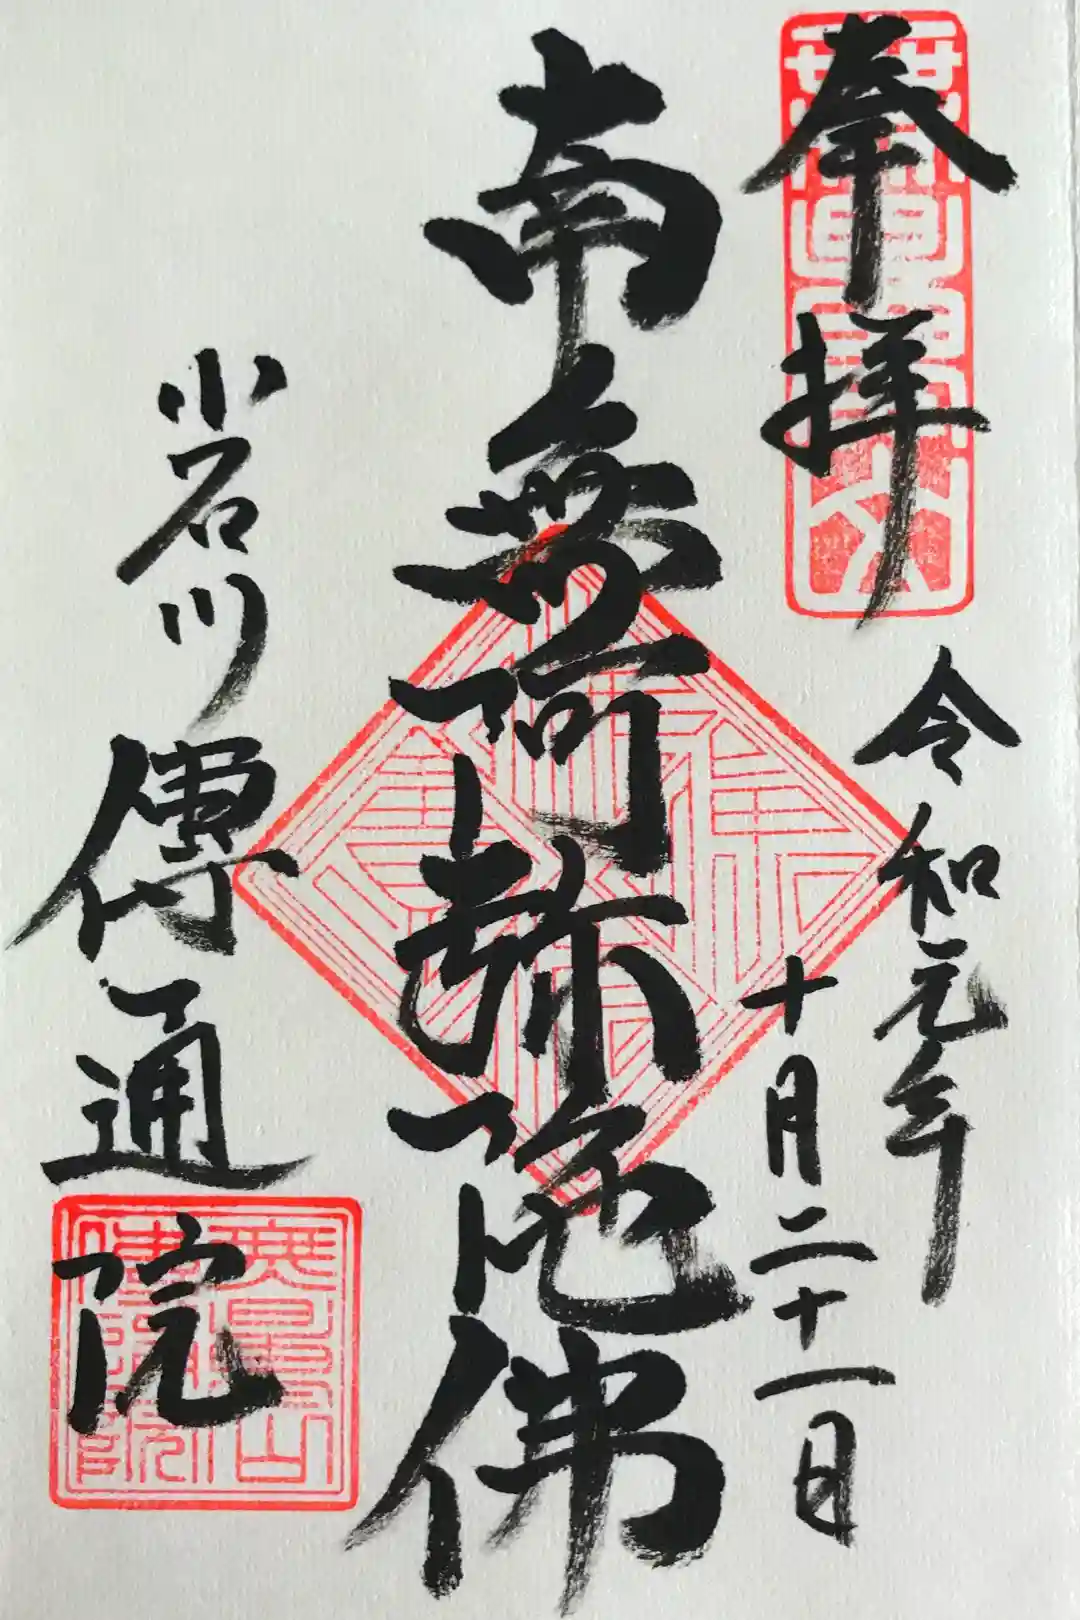 奉拝
令和元年
十月二十一日
南無阿弥陀佛
小石川
傳通院
無量山
無量壽山
傳通院